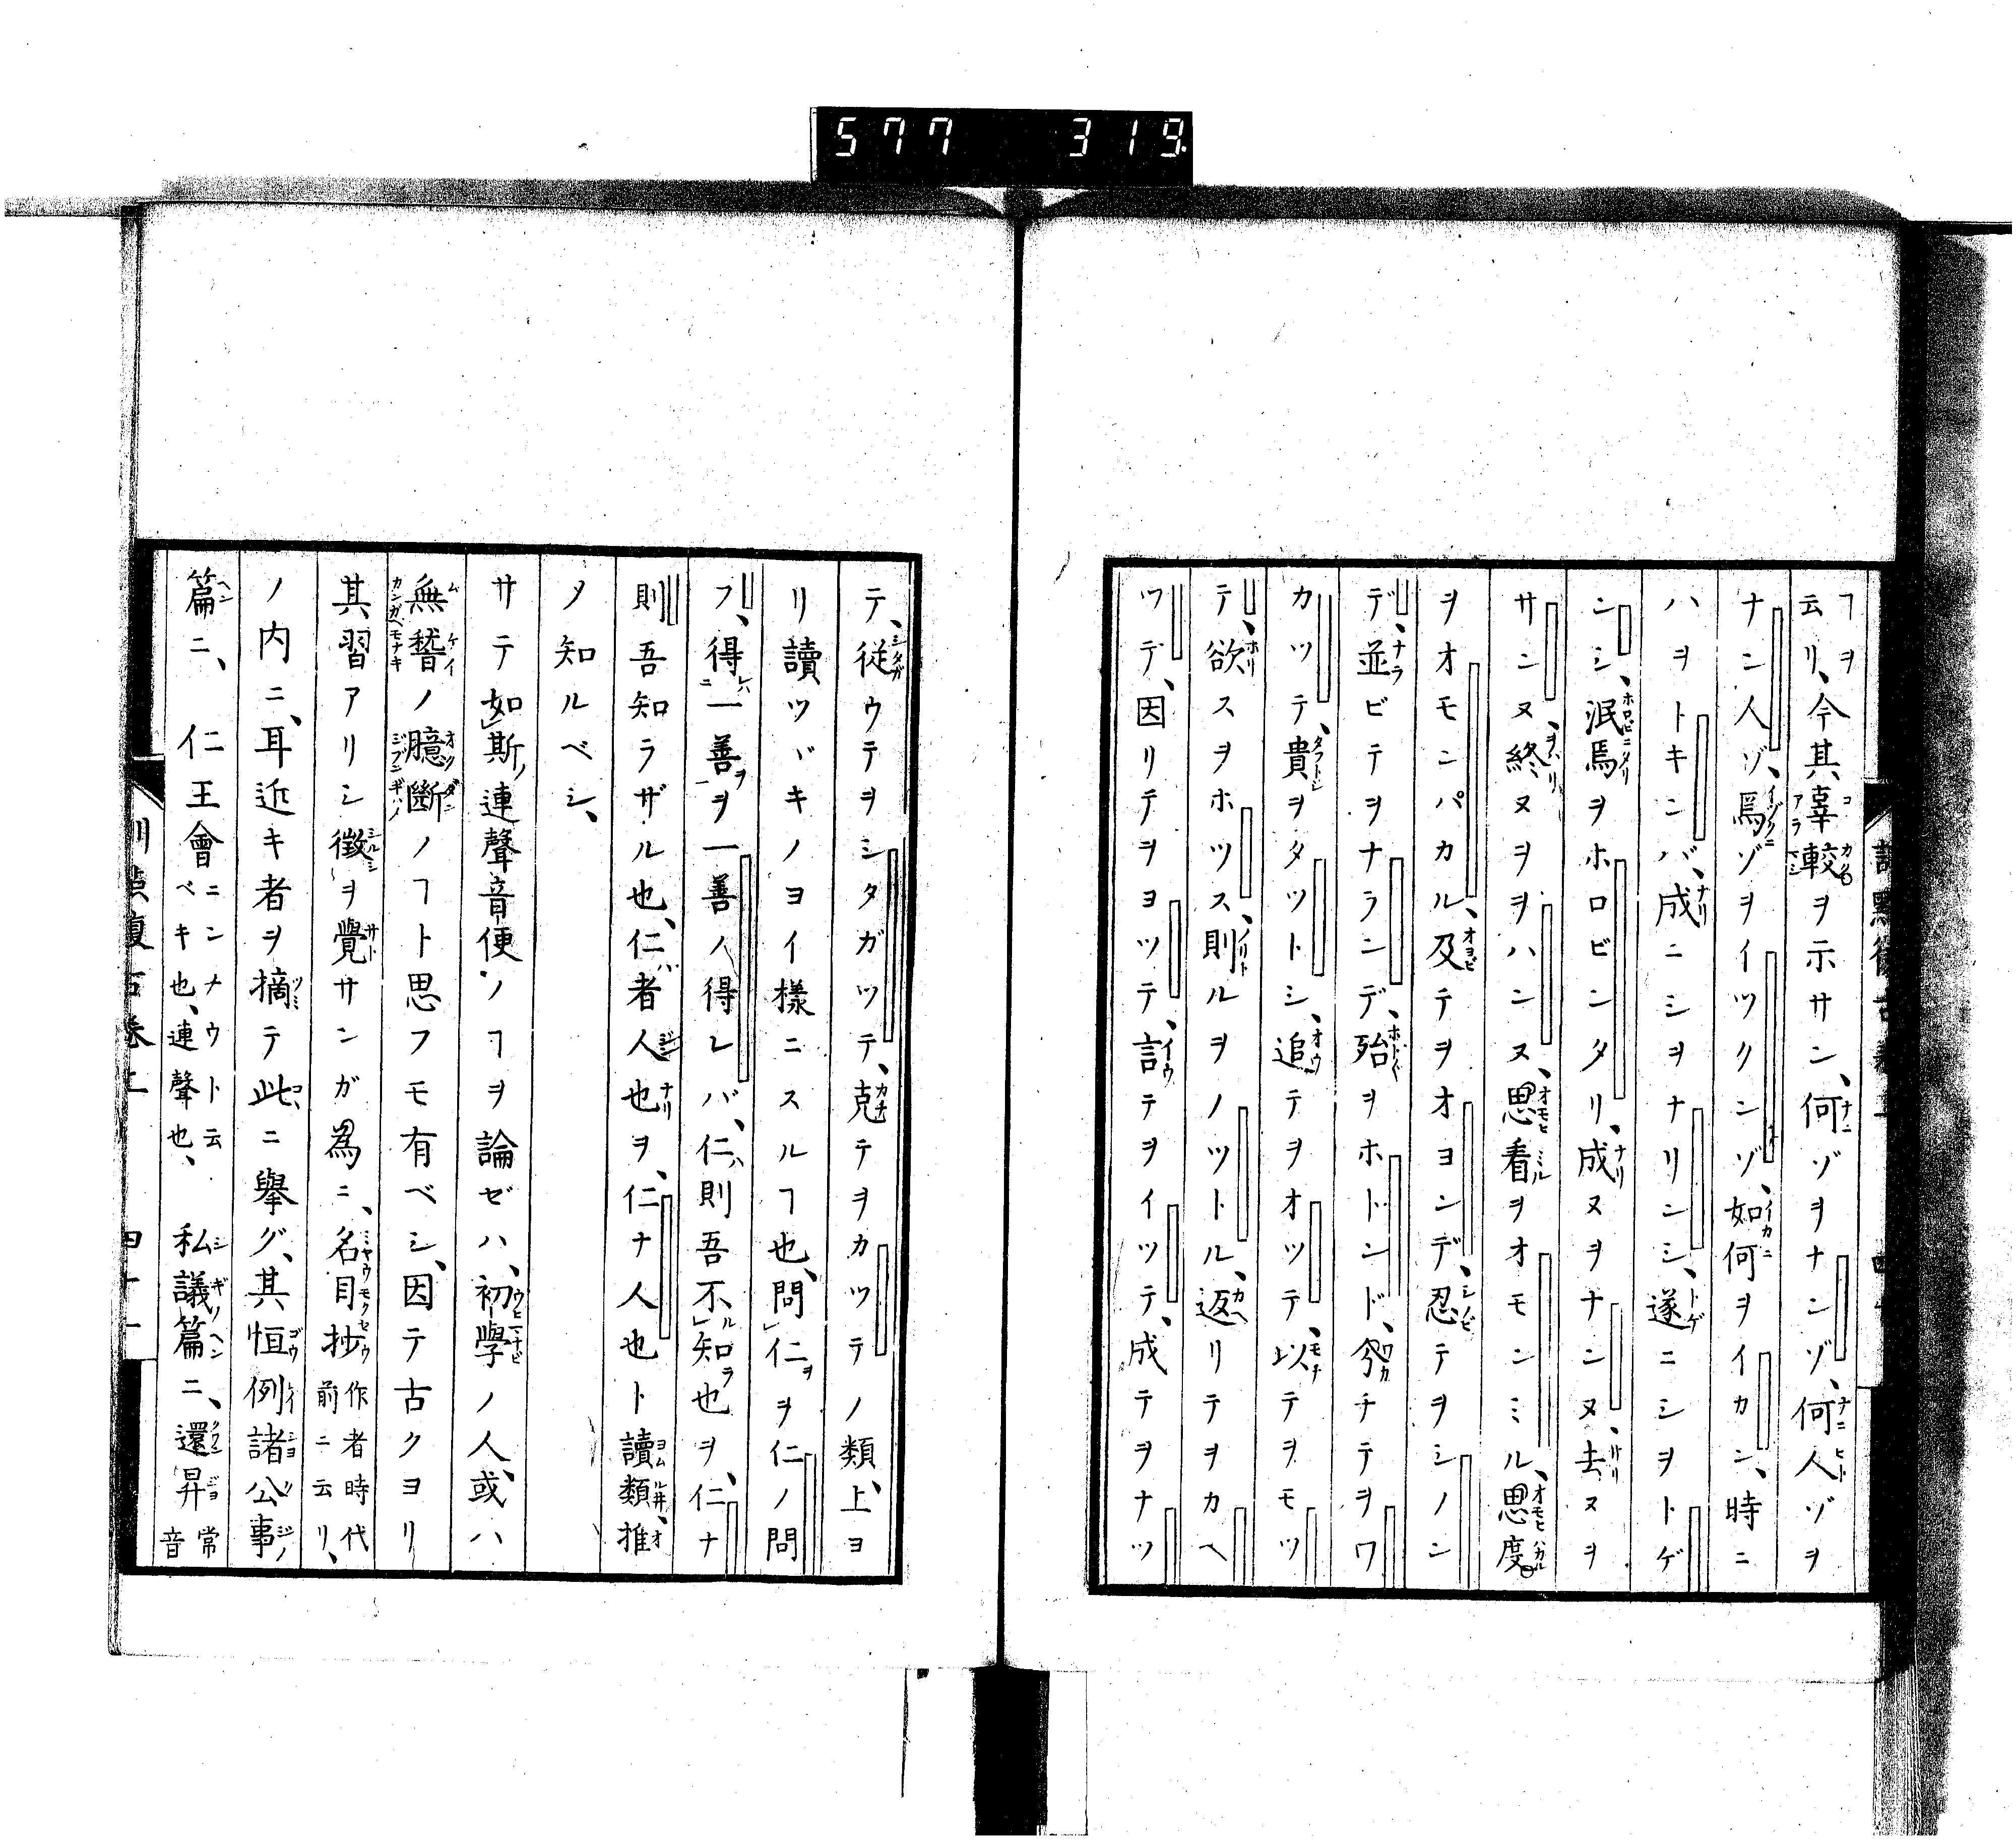 577 319
ヿヲ云リ、今其辜較ヲ示サン、何ゾヲナンゾ、何人ゾヲ
ナン人ゾ、焉ゾヲイツクンゾ、如何ヲイカン、時ニ
ハヲトキンバ、成ニシヲナリニシ、遂ニシヲトゲ
ンシ、泯焉ヲホロビンタリ、成ヌヲナンヌ、去ヌヲ
サンヌ、終ヌヲヲハンヌ、思看ヲオモンミル、思度
ヲオモンパカル、及テヲオヨンデ、忍テヲシノン
デ、並ビテヲナランデ、殆ヲホトンド、分チテヲワ
カツテ、貴ヲタツトシ、追テヲオツテ、以テヲモツ
テ、欲スヲホツス、則ルヲノツトル、返リテヲカヘ
ツデ、因リテヲヨツテ、言テヲイツテ、成テヲナツ
テ、従ウテヲシタガツテ、克テヲカツテノ類、上ヨ
リ讀ツヾキノヨイ樣ニスルヿ也、問仁ヲ仁ノ問
フ、得一善ヲ一善ノ得レバ、仁則吾不知也ヲ、仁ナ
則吾知ラザル也、仁者人也ヲ、仁ナ人也ト讀類推
メ知ルベシ、
サテ如斯連聲音便ノヿヲ論ゼハ、初學ノ人、或ハ
無稽ノ臆斷ノヿト思フモ有ベシ、因テ古クヨリ
其習アリシ徴ヲ覺サンガ為ニ、名目抄作者時代前ニ云リ、
ノ内ニ、耳近キ者ヲ摘テ此ニ擧グ、其恒例諸公事
篇ニ、仁王會ニンナウト云ベキ也、連聲也、私議篇ニ、還昇常音
訓點復古卷上 四十一